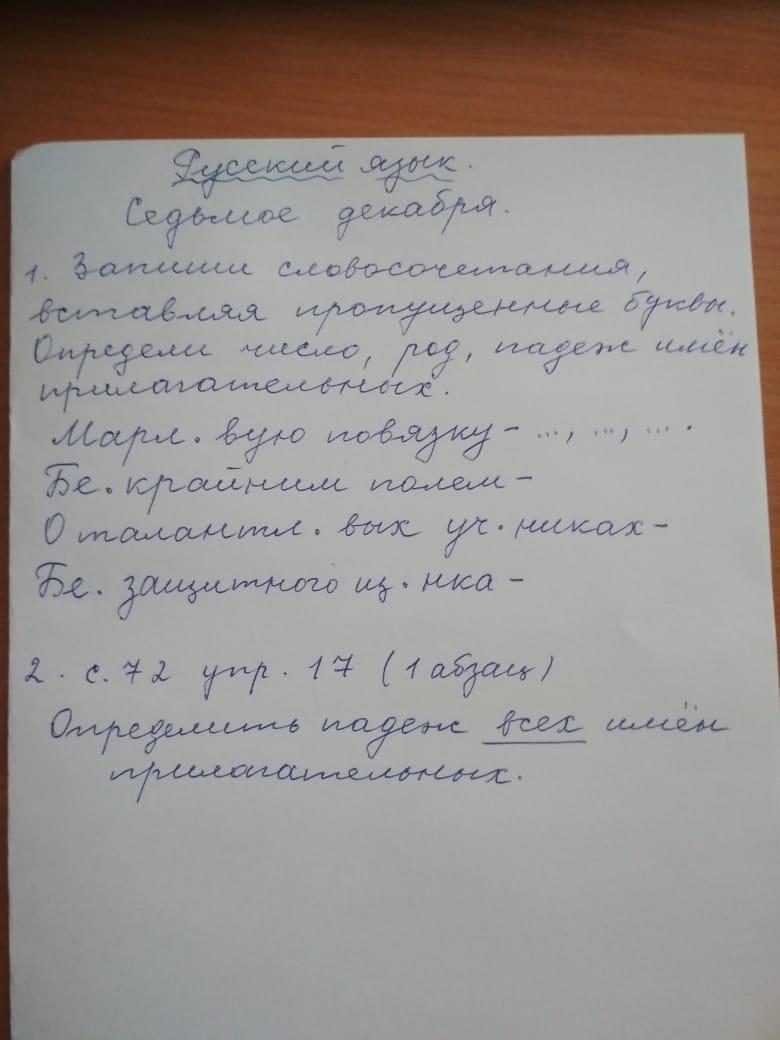 Русский язык.
Седьмое декабря.
1. Запиши словосочетания,
вставляя пропущенные буквы.
Определи число, род, падеж имён
прилагательных.
Марл. вую повязку - ..., ..., ... .
Бе. крайним полем -
О талантл. вых уч. никах -
Бе. защитного щ. нка -
2. с. 72 упр. 17 (1 абзац)
Определить падеж всех имён
прилагательных.